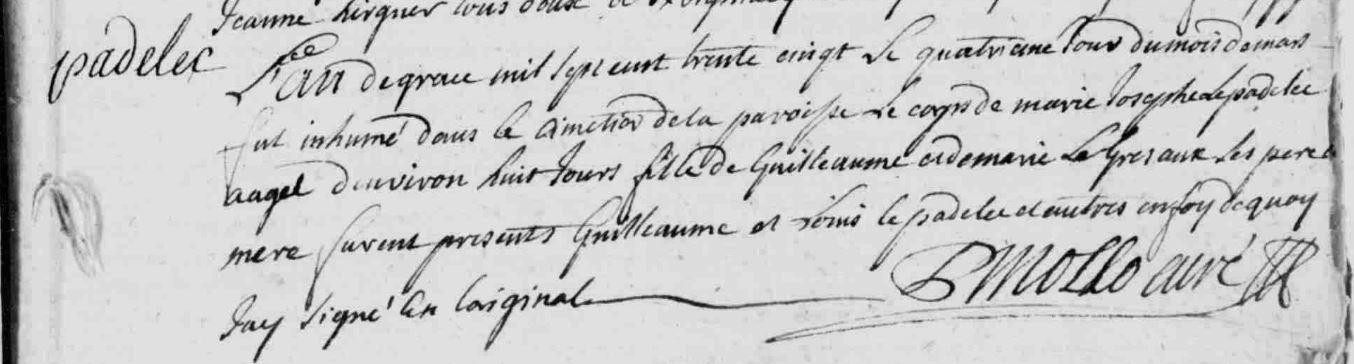 Jeanne
padelec
L'an de grace mil sept cent trente cinqt Le quatrieme Jour du mois de mars
fut inhumé dans le cimetier de la paroisse Le corps de marie Josephe Le padelec
aagée d'environ huit Jours fille de Guilleaume et de marie Le Gresaux Ses pere &
mere furent presents Guilleaume et Louis le padelec et autres en foy de quoy
Jay signé En Loriginal P Mollo curé